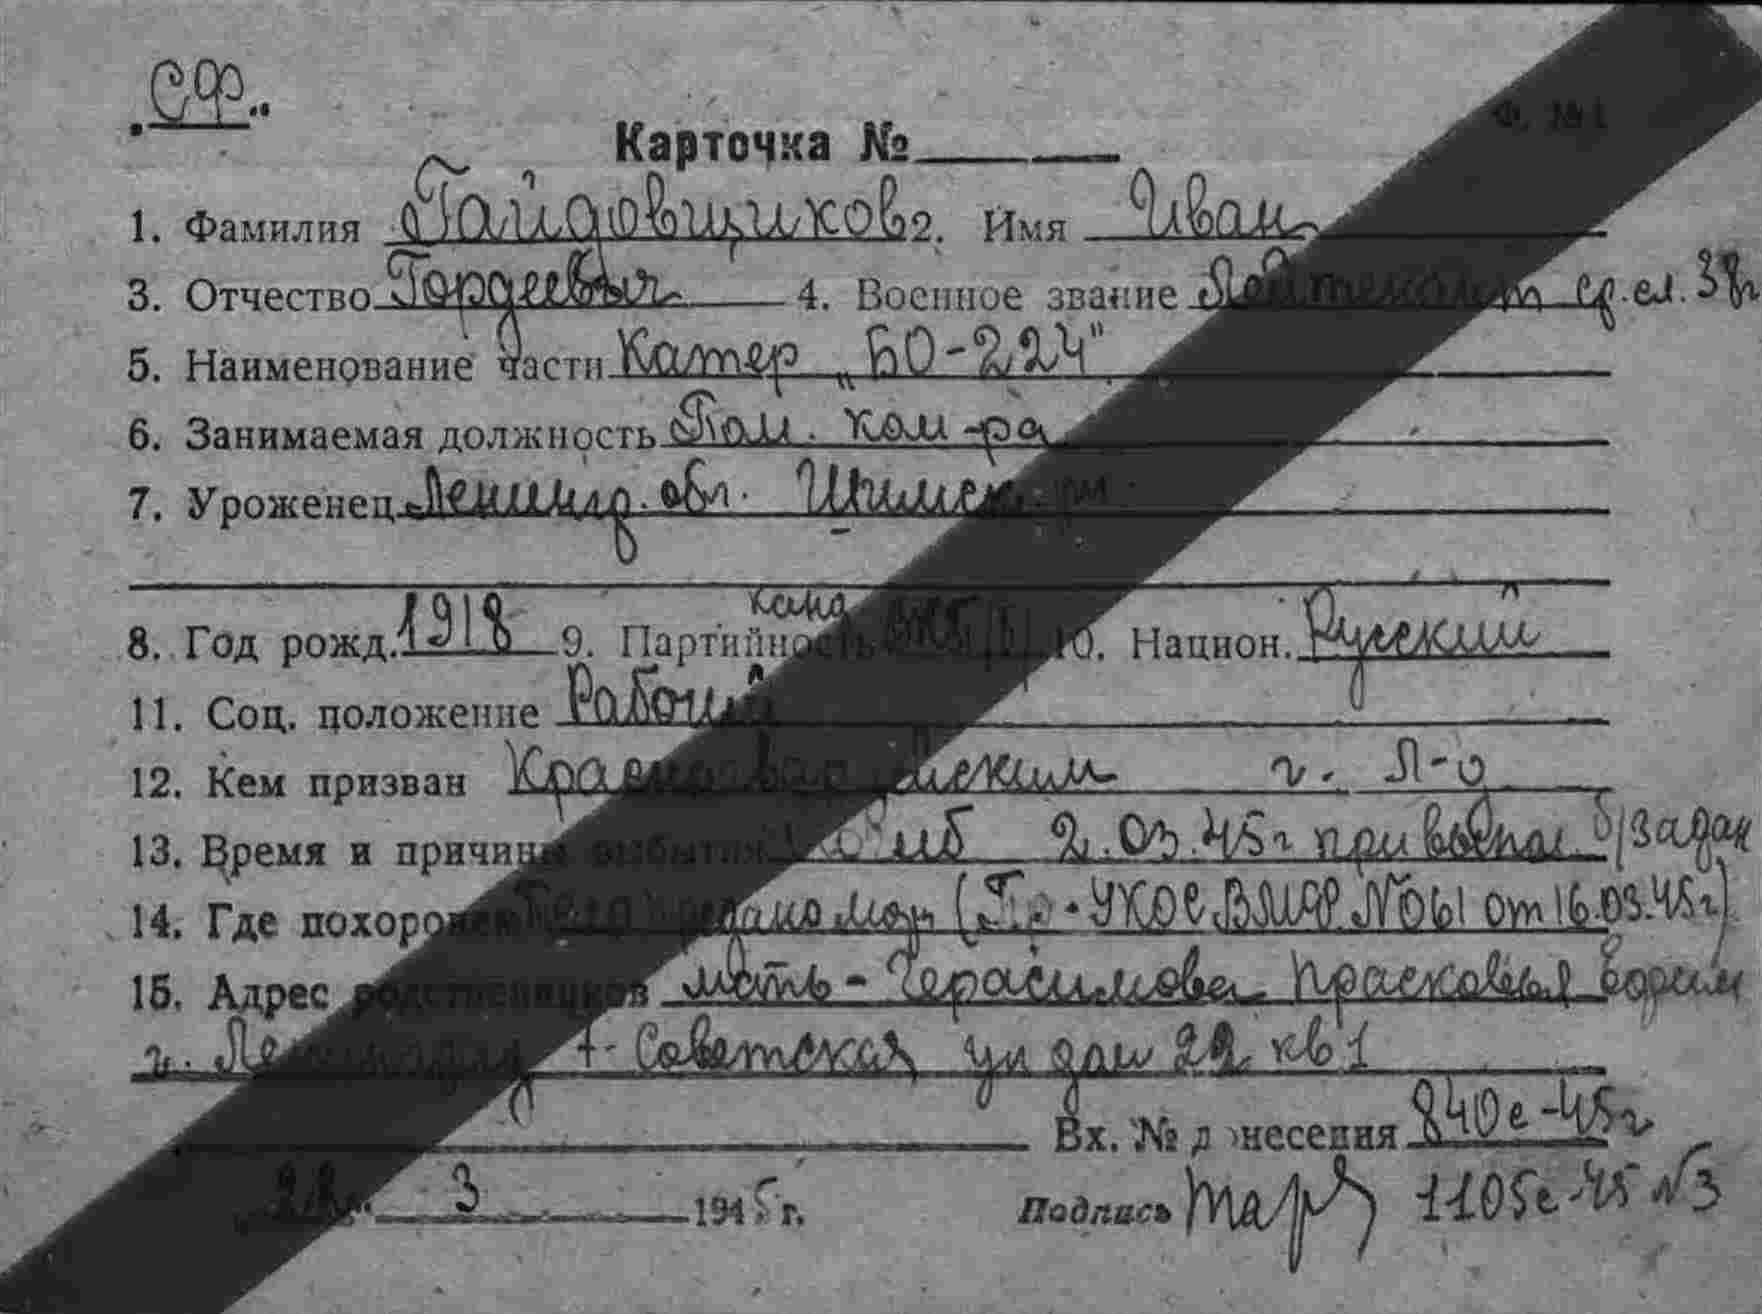 СФ.
Ф. №1
Карточка №
1. Фамилия Гайдовщиков 2. Имя Иван
3. Отчество Гордеевич 4. Военное звание Лейтенант ср.сл. 38г
5. Наименование части Катер „БО-224"
6. Занимаемая должность Пом. ком-ра
7. Уроженец Ленингр. обл. Шимск. рн
канд
8. Год рожд. 1918 9. Партийность ВКП(б) 10. Национ. Русский
11. Соц. положение Рабочий
12. Кем призван Красногвардейским г. Л-д
13. Время и причина выбытия погиб 2.03.45г при выпол. б/задан
14. Где похоронен Тело предано морю (Пр. УКОС ВМФ №061 от 16.03.45г)
15. Адрес родственников мать - Герасимова Прасковья Ефрим
г. Ленинград, 7- Советская ул дом 22 кв 1
Вх. № донесения 840с-45г
22. 3 1945 г. Подпись 1105с-45 №3